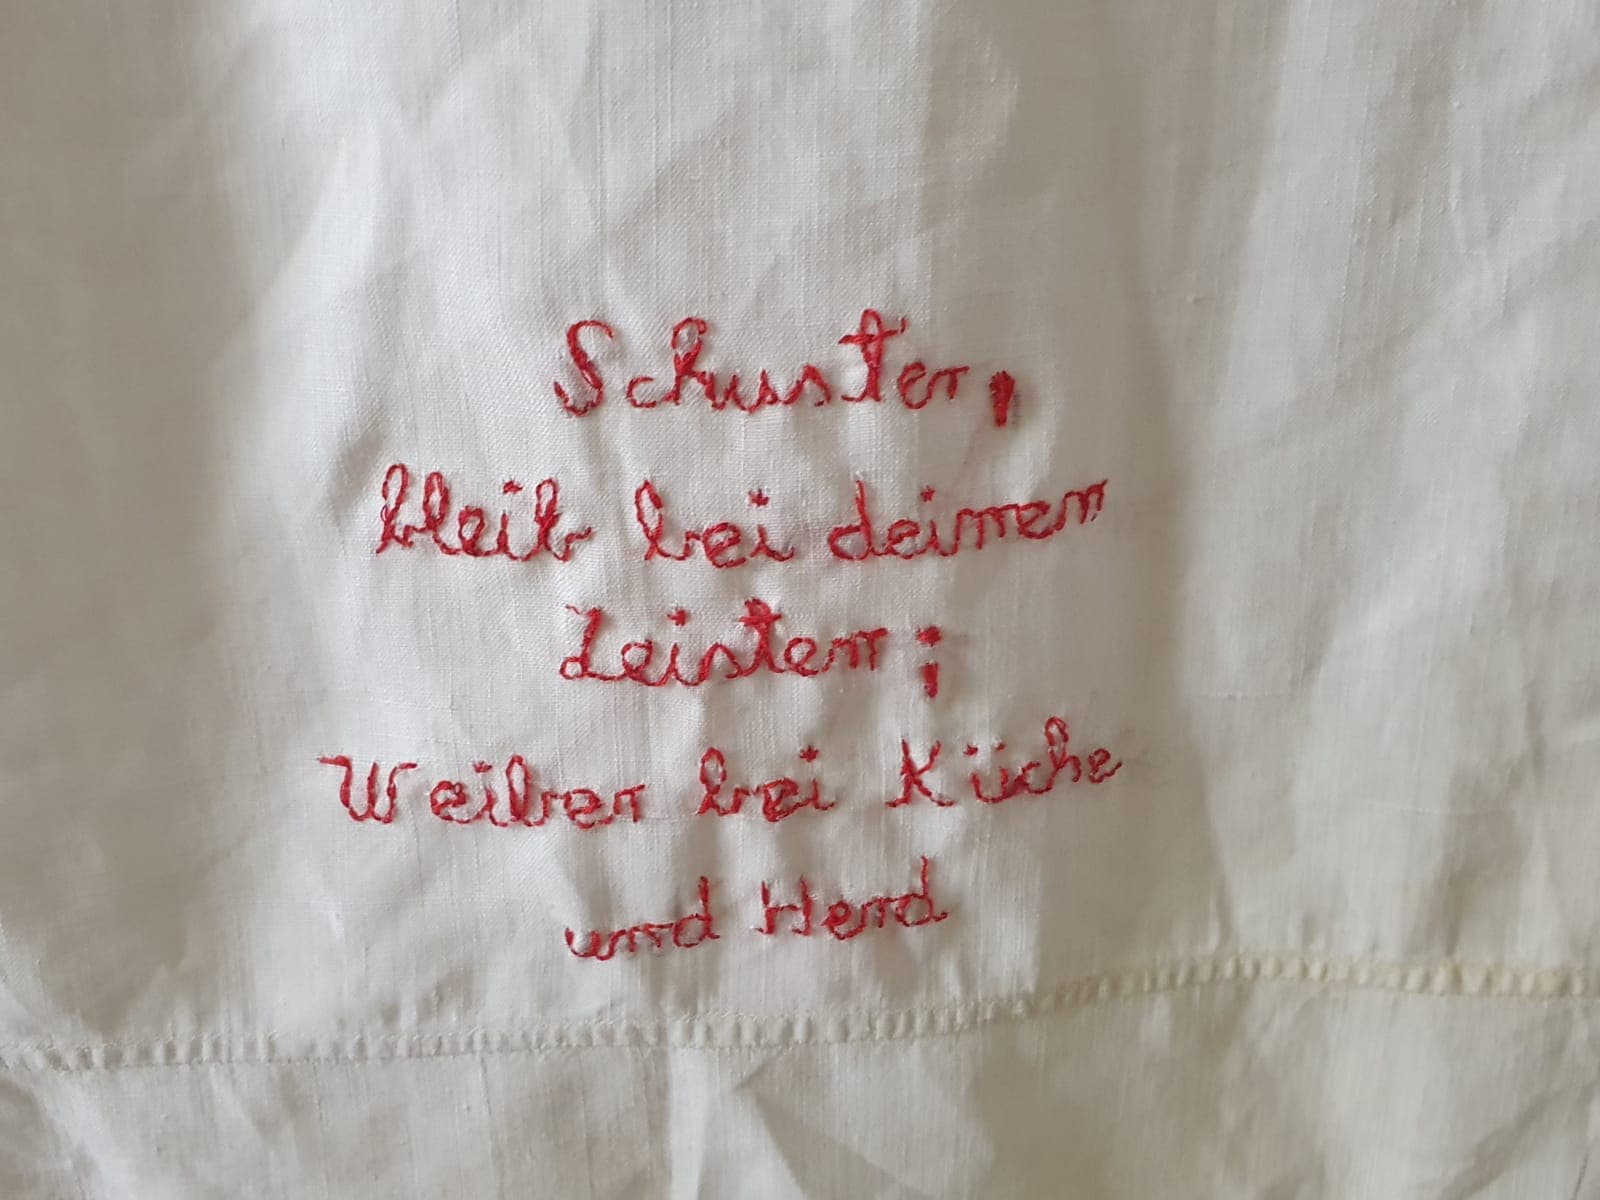 Schuster,
bleib bei deinen
Leisten;
Weiber bei Küche
und Herd